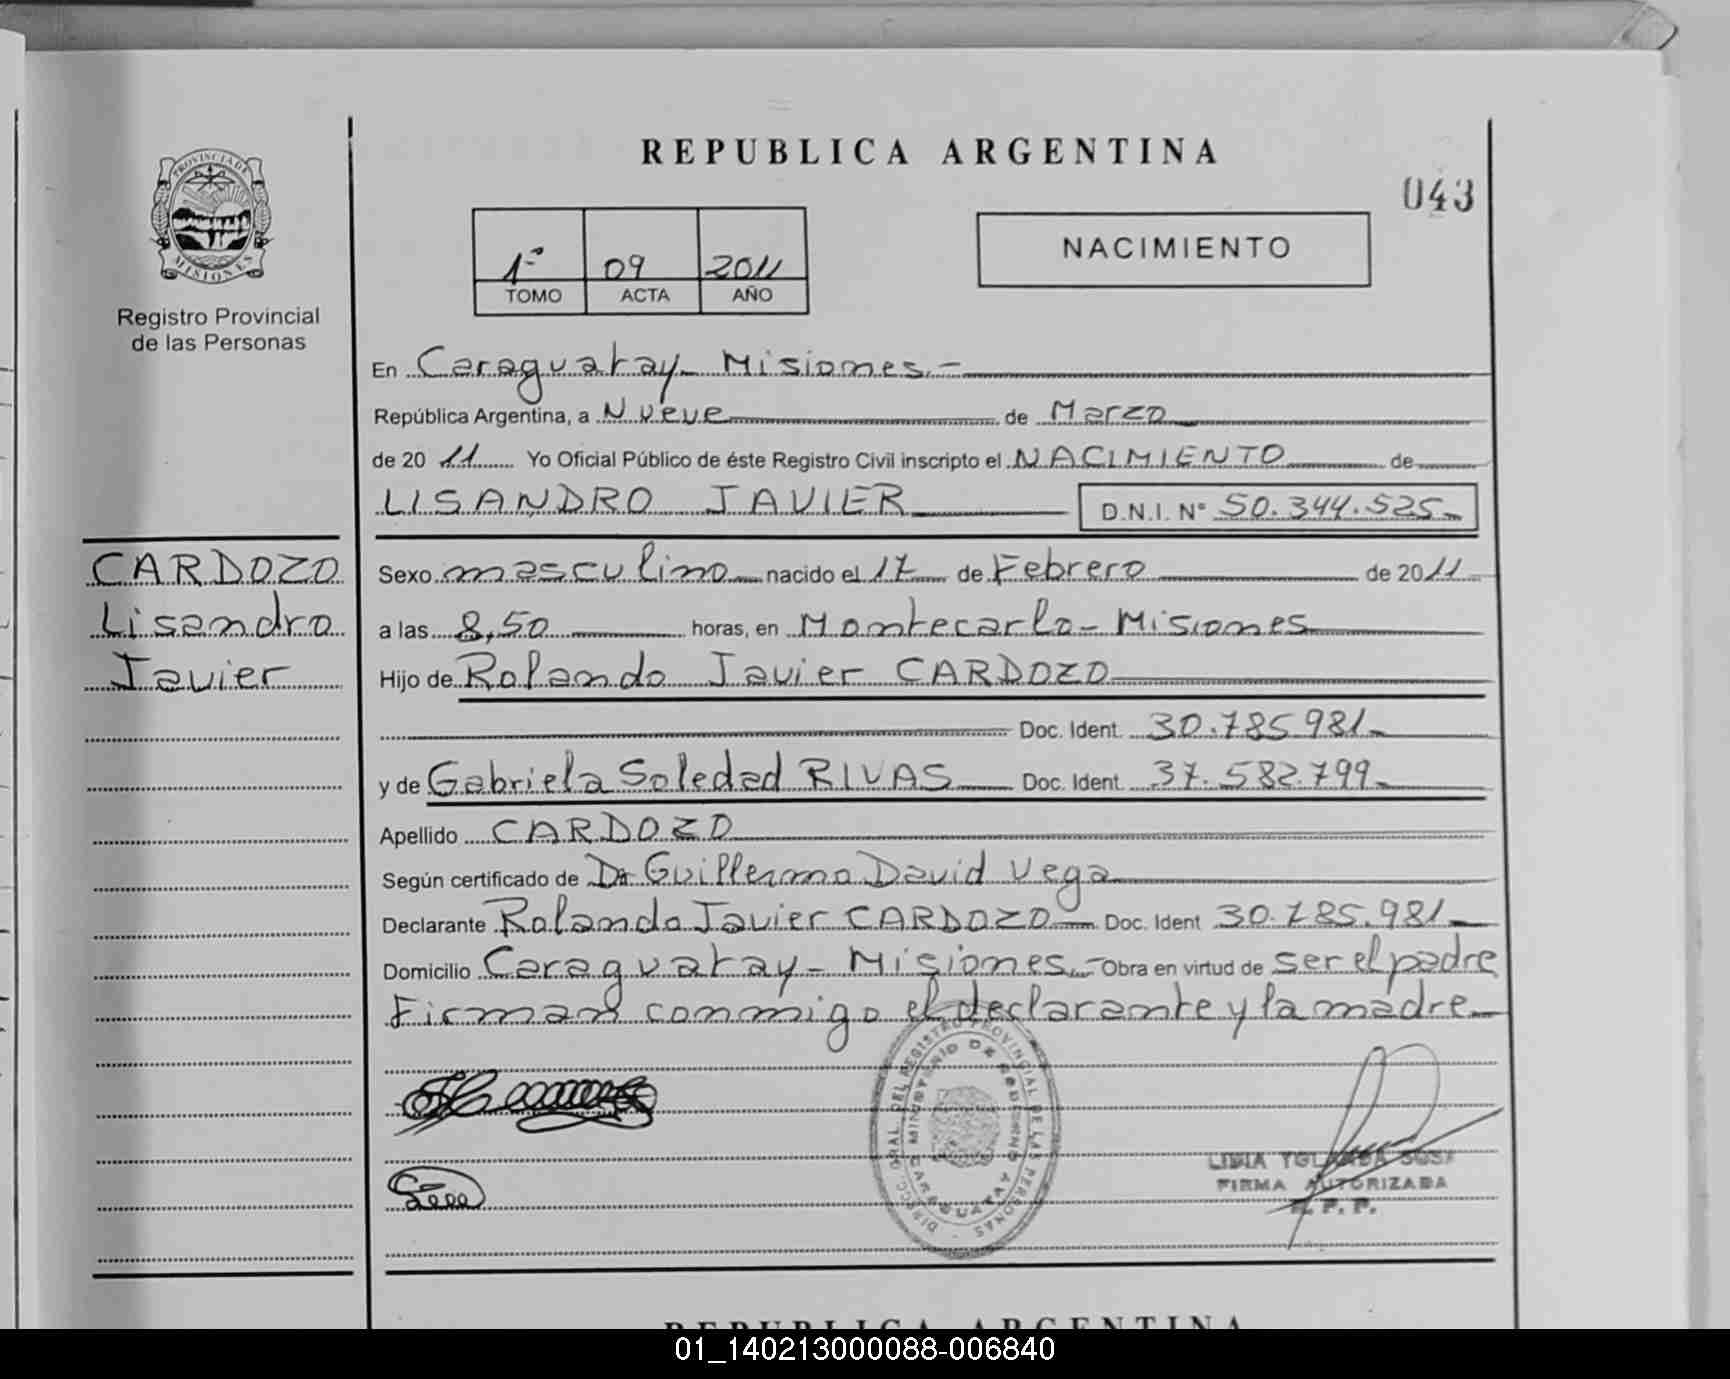 REPUBLICA ARGENTINA
043
PROVINCIA DE
MISIONES
Registro Provincial
de las Personas
1º 09 2011
TOMO ACTA AÑO
NACIMIENTO
En Caraguatay - Misiones.-
República Argentina, a Nueve de Marzo
de 20 11 Yo Oficial Público de éste Registro Civil inscripto el NACIMIENTO de
LISANDRO JAVIER D.N.I. N° 50.344.525-
CARDOZO
Lisandro
Javier
Sexo masculino nacido el 17 de Febrero de 2011
a las 8,50 horas, en Montecarlo - Misiones
Hijo de Rolando Javier CARDOZO
Doc. Ident. 30.785.981-
y de Gabriela Soledad RIVAS Doc. Ident. 37.582.799-
Apellido CARDOZO
Según certificado de Dr Guillermo David Vega
Declarante Rolando Javier CARDOZO Doc. Ident 30.785.981-
Domicilio Caraguatay - Misiones.- Obra en virtud de ser el padre
Firman conmigo el declarante y la madre-
DIRECC. GRAL. DEL REGISTRO PROVINCIAL DE LAS PERSONAS
MINISTERIO DE GOBIERNO
CARAGUATAY
LIDIA YOLANDA SOSA
FIRMA AUTORIZADA
R. P. P.
REPUBLICA ARGENTINA
01_140213000088-006840